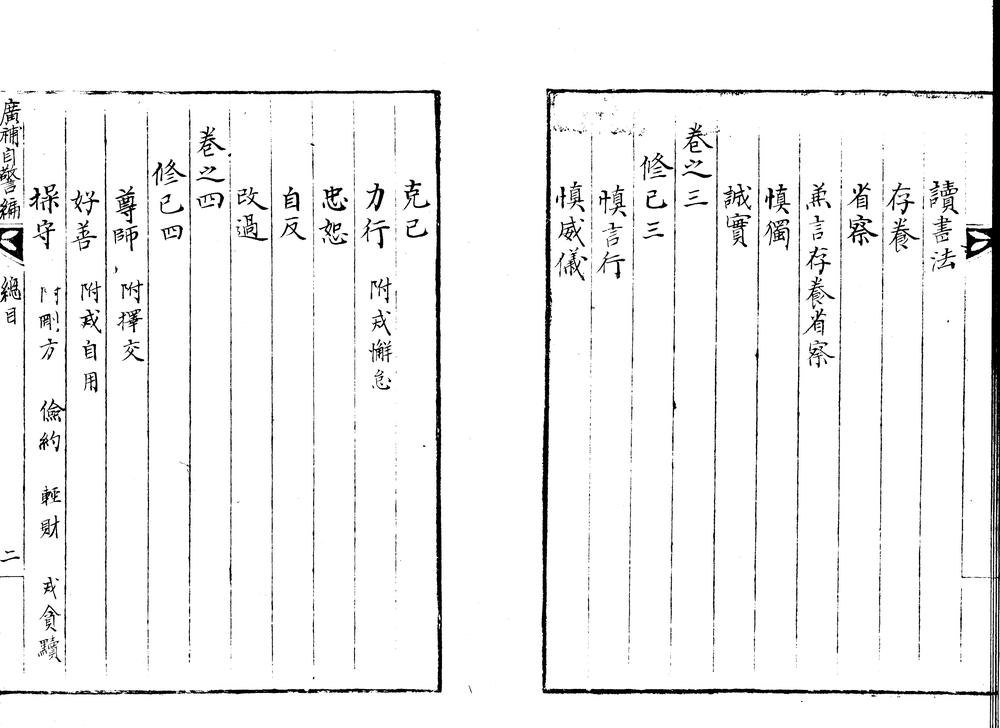 讀書法
存養
省察
兼言存養省察
慎獨
誠實
卷之三
修己三
慎言行
慎威儀
克己
力行 附戒懈怠
忠恕
自反
改過
卷之四
修己四
尊師 附擇交
好善 附戒自用
操守 附剛方 儉約 輕財 戒貪黷
廣補自警編 總目 二